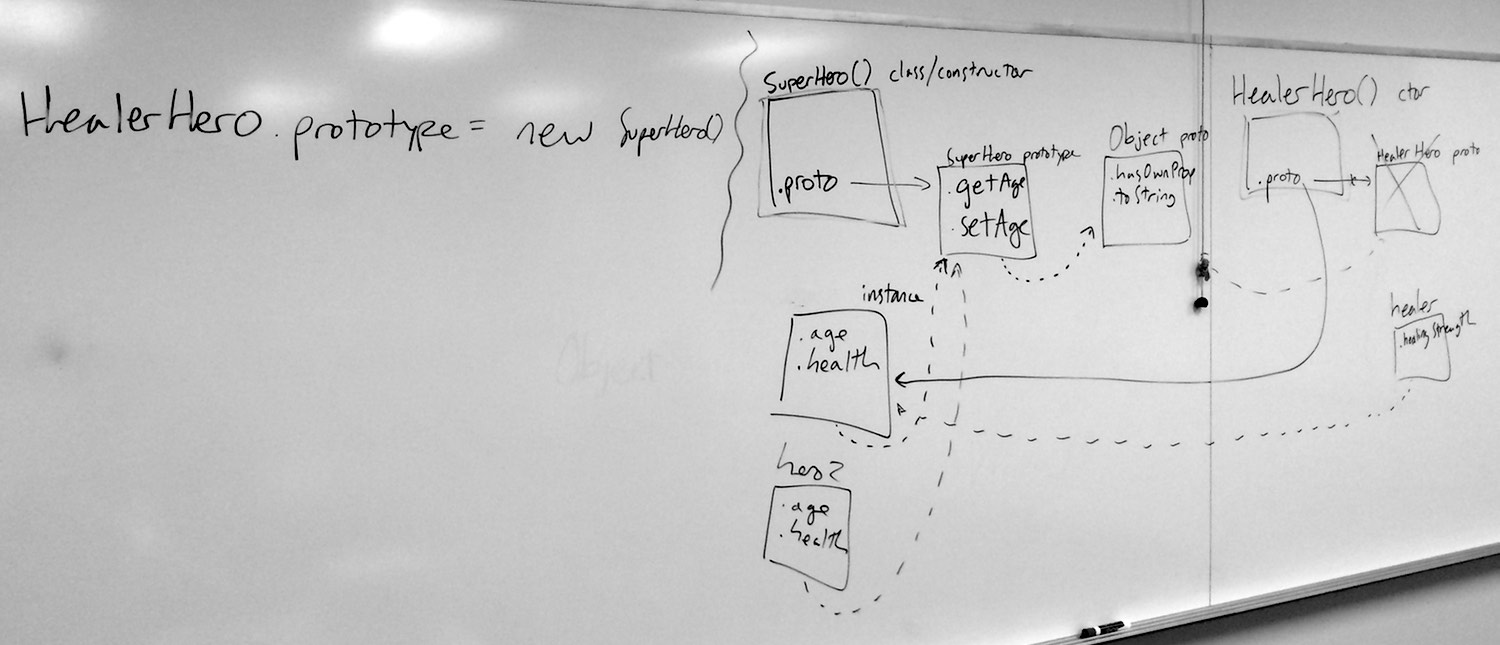 HealerHero.prototype = new SuperHero()
SuperHero() class/constructor
.proto
SuperHero prototype
.getAge
.setAge
Object proto
.hasOwnProp
.toString
HealerHero() ctor
.proto
HealerHero proto
instance
.age
.health
healer
.healingStrength
hero2
.age
.health
Object